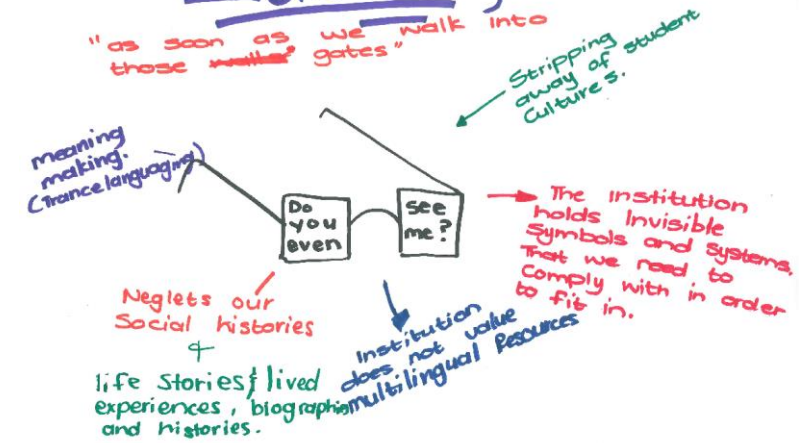 "as soon as we walk into
those gates"
Stripping
away of student
Cultures.
meaning
making.
(Trancelanguaging)
Do
you
even
see
me?
The institution
holds Invisible
Symbols and systems.
That we need to
Comply with in order
to fit in.
Neglets our
Social histories
+
life Stories & lived
experiences, biographies
and histories.
Institution
does not value
multilingual Resources